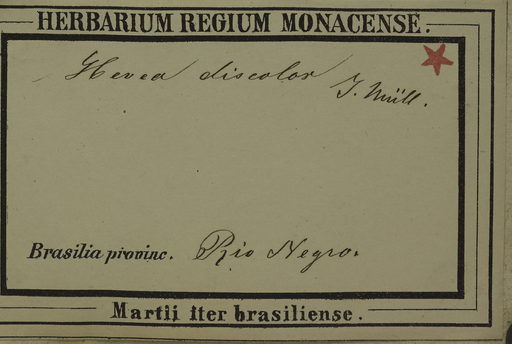 HERBARIUM REGIUM MONACENSE.
Hevea discolor J. Müll.
Brasilia provinc. Rio Negro.
Martii iter brasiliense.